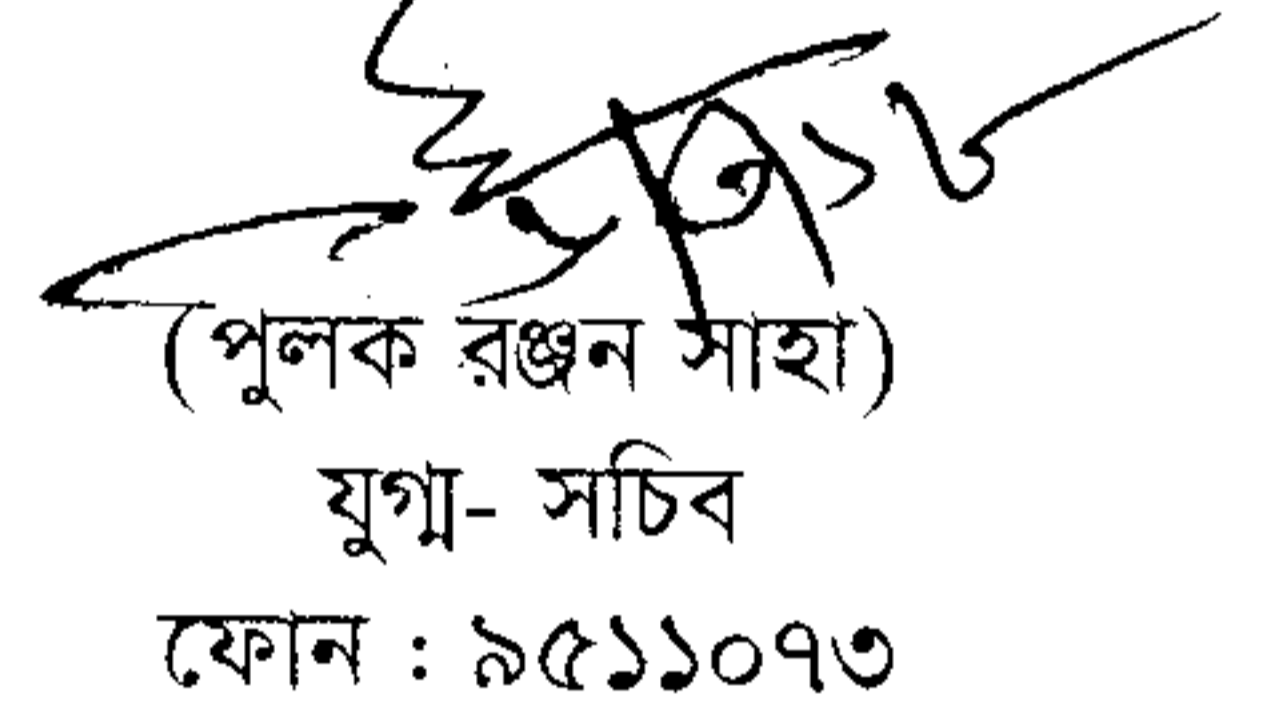 (পুলক রঞ্জন সাহা)
যুগ্ম- সচিব
ফোন : ৯৫১১০৭৩